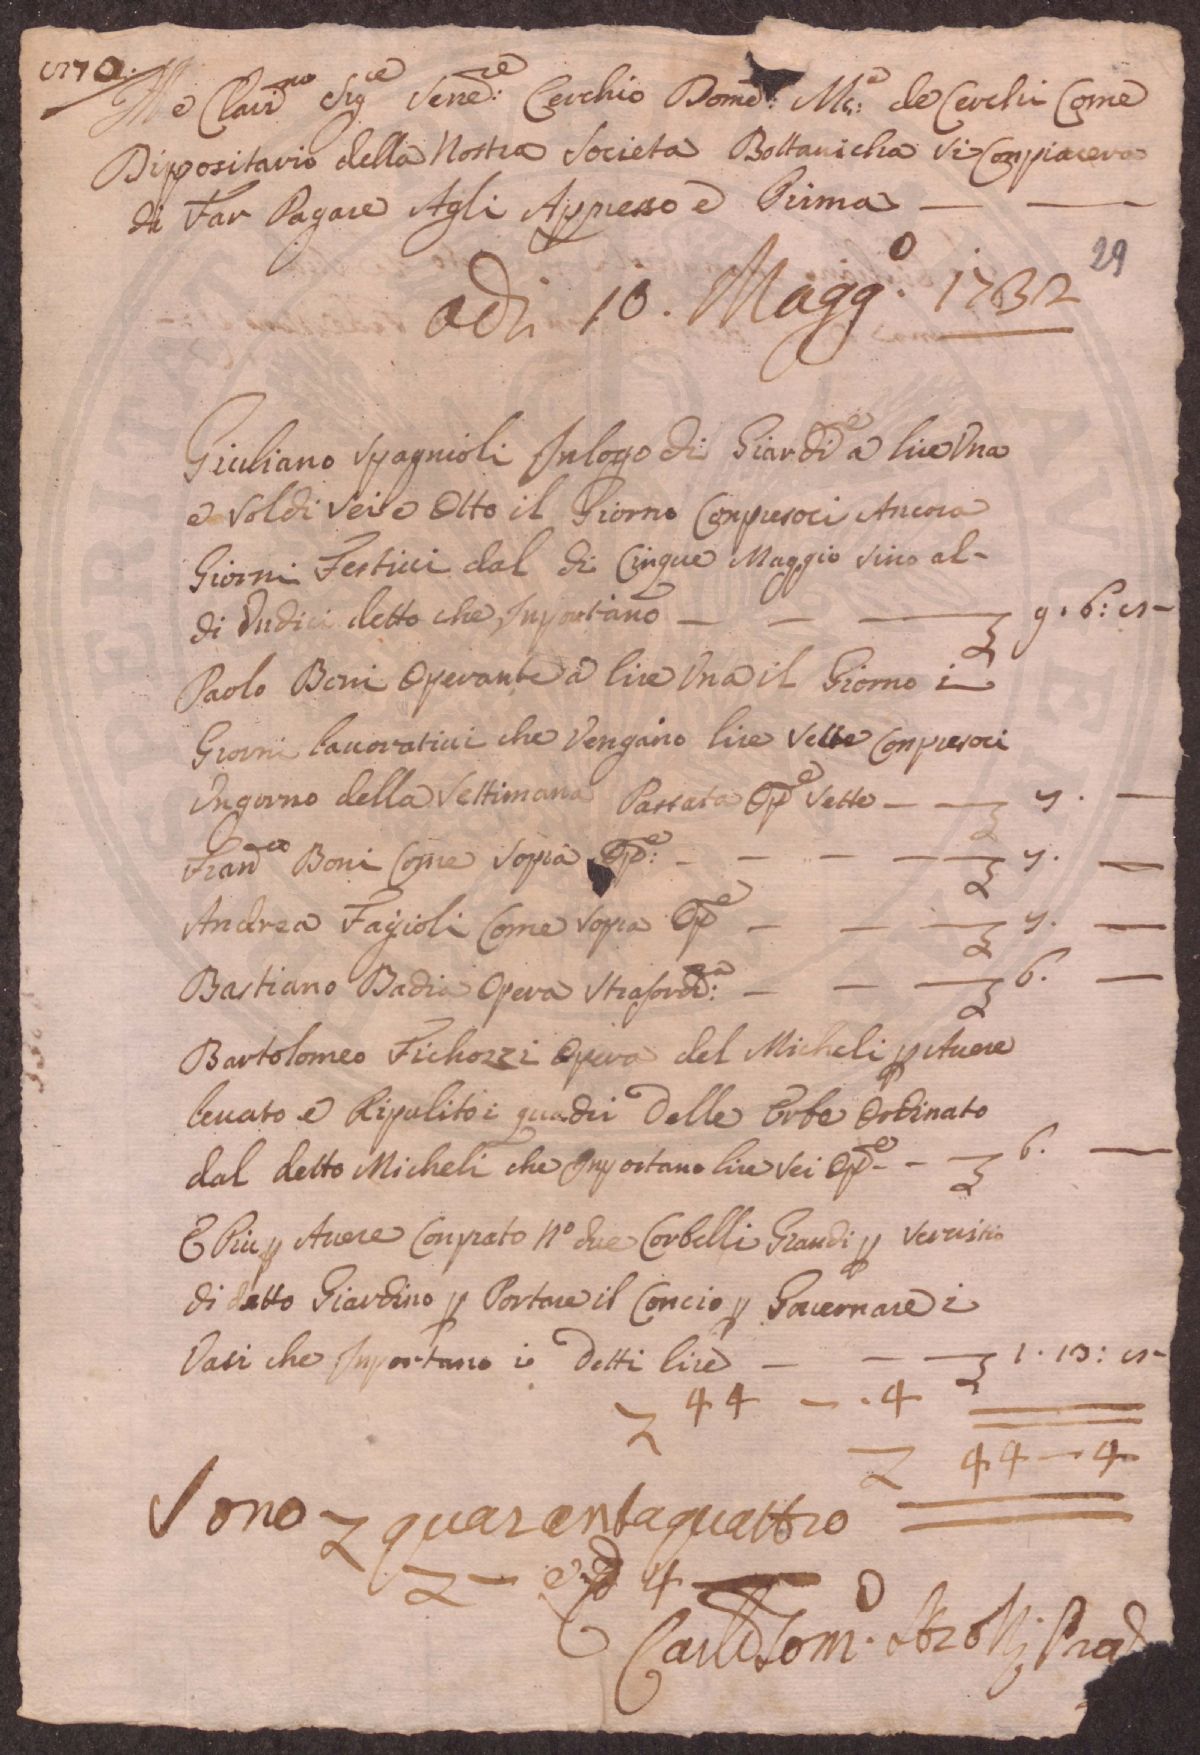 Clar.mo Sig.re Sen.re Cerchio Dome: Ma: de Cerchi Come
Dippositario della Nostra Societa Bottanicha Si Conpiacera
di Far Pagare Agli Appresso e Prima
29
Adi 10. Magg.o 1732
Giuliano Spagnioli Inlogo di Giardi.e a lire Una
e Soldi Sei e Otto il Giorno Conpresoci Ancora
Giorni Festivi dal di Cinque Maggio Sino al-
di Undici detto che Inportano 9. 6: 8-
Paolo Boni Operante a lire Una il Giorno i
Giorni lavorativi che Vengano lire Sette Conpresoci
Ungorno della Settimana Passata Op.e Sette 7. —
Fran.co Boni Come Sopra Op.e: 7. —
Andrea Fagioli Come Sopra Op.e 7. —
Bastiano Badia Opera Strasord.a: 6. —
Bartolomeo Fichozzi Opera del Micheli p Avere
levato e Ripulito i quadri Delle Erbe Ordinato
dal detto Micheli che Inportano lire Sei Op.e 6. —
E Piu p Avere Conprato N.o due Corbelli Grandi p Servitio
di detto Giardino p Portare il Concio p Governare i
Vasi che Inportano i Detti lire 1. 13:
44 — . 4
44 — 4
Sono quarantaquattro
4
Carlo Tom.o Strozzi